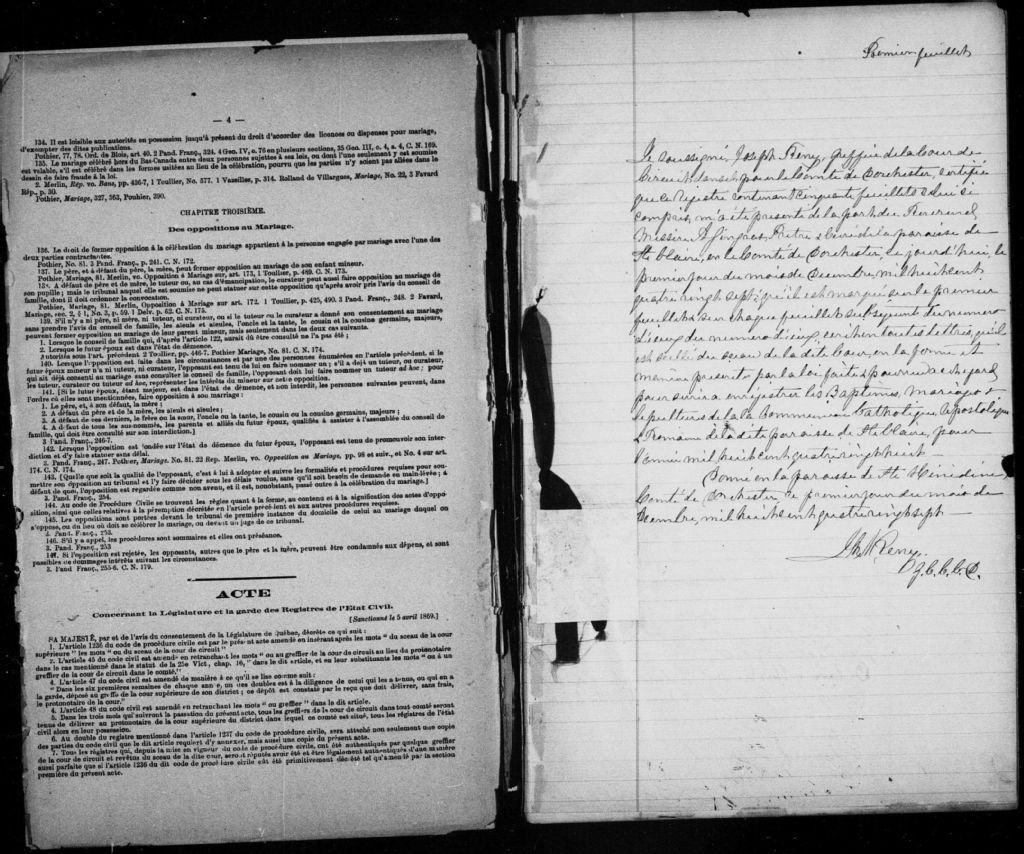 — 4 —
134. Il est loisible aux autorités en possession jusqu'à présent du droit d'accorder des licences ou dispenses pour mariage,
d'exempter des dites publications.
Pothier, 77, 78. Ord. de Blois, art 40. 2 Pand. Franç., 324. 4 Geo. IV, c. 76 en plusieurs sections, 35 Geo. III, c. 4, s. 4, C. N. 169.
135. Le mariage célébré hors du Bas-Canada entre deux personnes sujettes à ses lois, ou dont l'une seulement y est soumise
est valable, s'il est célébré dans les formes usitées au lieu de la célébration, pourvu que les parties n'y soient pas allées dans le
dessein de faire fraude à la loi.
2. Merlin, Rép. vo. Bans, pp. 436-7, 1 Toullier, No. 577. 1 Vassilles, p. 314. Rolland de Villargues, Mariage, No. 22, 3 Favard
Rép., p. 30.
Pothier, Mariage, 327, 363, Pouhier, 390.
CHAPITRE TROISIÈME.
Des oppositions au Mariage.
136. Le droit de former opposition à la célébration du mariage appartient à la personne engagée par mariage avec l'une des
deux parties contractantes.
Pothier, No. 81. 3 Pand. Franç., p. 241. C. N. 172.
137. Le père, et à défaut du père, la mère, peut former opposition au mariage de son enfant mineur.
Pothier, Mariage, 81. Merlin, vo. Opposition à Mariage sur, art. 173, 1 Toullier, p. 489. C. N. 173.
138. A défaut de père et de mère, le tuteur ou, au cas d'émancipation, le curateur peut aussi faire opposition au mariage de
son pupille; mais le tribunal auquel elle est soumise ne peut statuer sur cette opposition qu'après avoir pris l'avis du conseil de
famille, dont il doit ordonner la convocation.
Pothier, Mariage, 81. Merlin, Opposition à Mariage sur art. 172. 1 Toullier, p. 425, 490. 3 Pand. Franç., 248. 2 Favard,
Mariage, sec. 2, § 1, No. 3, p. 59. 1 Delv. p. 62. C. N. 175.
139. S'il n'y a ni père, ni mère, ni tuteur, ni curateur, ou si le tuteur ou le curateur a donné son consentement au mariage
sans prendre l'avis du conseil de famille, les aïeuls et aïeules, l'oncle et la tante, le cousin et la cousine germains, majeurs,
peuvent former opposition au mariage de leur parent mineur, mais seulement dans les deux cas suivants.
1. Lorsque le conseil de famille qui, d'après l'article 122, aurait dû être consulté ne l'a pas été;
2. Lorsque le futur époux est dans l'état de démence.
Autorités sous l'art. précédent 2 Toullier, pp. 446-7. Pothier Mariage, No. 81. C. N. 174.
140. Lorsque l'opposition est faite dans les circonstances et par une des personnes énumérées en l'article précédent, si le
futur époux mineur n'a ni tuteur, ni curateur, l'opposant est tenu de lui en faire nommer un; s'il a déjà un tuteur, ou curateur,
qui ait déjà consenti au mariage sans consulter le conseil de famille, l'opposant doit lui faire nommer un tuteur ad hoc; pour
les tuteur, curateur ou tuteur ad hoc, représenter les intérêts du mineur sur cette opposition.
141. [Si le futur époux, étant majeur, est dans l'état de démence, et non interdit, les personnes suivantes peuvent, dans
l'ordre où elles sont mentionnées, faire opposition à son mariage:
1. Le père, et, à son défaut, la mère;
2. A défaut du père et de la mère, les aïeuls et aïeules;
3. A défaut de ces derniers, le frère ou la sœur, l'oncle ou la tante, le cousin ou la cousine germains, majeurs;
4. A défaut de tous les sus-nommés, les parents et alliés du futur époux, qualifiés à assister à l'assemblée du conseil de
famille, qui doit être consulté sur son interdiction.]
3 Pand. Franç., 246-7.
142. Lorsque l'opposition est fondée sur l'état de démence du futur époux, l'opposant est tenu de promouvoir son inter-
diction et d'y faire statuer sans délai.
3. Pand. Franç., 247. Pothier, Mariage. No. 81. 22 Rép. Merlin, vo. Opposition au Mariage, pp. 98 et suiv., et No. 4 sur art.
174. C. N. 174.
143. [Quelle que soit la qualité de l'opposant, c'est à lui à adopter et suivre les formalités et procédures requises pour sou-
mettre son opposition au tribunal et l'y faire décider sous les délais voulus, sans qu'il soit besoin de demande en main-levée; à
défaut de quoi, l'opposition est regardée comme non avenue, et il est, nonobstant, passé outre à la célébration du mariage.]
3. Pand. Franç., 254.
144. Au code de Procédure Civile se trouvent les règles quant à la forme, au contenu et à la signification des actes d'oppo-
sition, ainsi que celles relatives à la péremption décrétée en l'article précédent et aux autres procédures requises.
145. Les oppositions sont portées devant le tribunal de première instance du domicile de celui au mariage duquel on
s'oppose, ou du lieu où doit se célébrer le mariage, ou devant un juge de ce tribunal.
3. Pand. Franç., 253.
146. S'il y a appel, les procédures sont sommaires et elles ont préséance.
3. Pand. Franç., 253
147. Si l'opposition est rejetée, les opposants, autres que le père et la mère, peuvent être condamnés aux dépens, et sont
passibles de dommages intérêts suivant les circonstances.
3. Pand Franç., 255-6. C. N. 179.
ACTE
Concernant la Législature et la garde des Registres de l'Etat Civil.
[Sanctionné le 5 avril 1869.]
SA MAJESTÉ, par et de l'avis du consentement de la Législature de Québec, décrète ce qui suit:
1. L'article 1236 du code de procédure civile est par le présent acte amendé en insérant après les mots "du sceau de la cour
supérieure" les mots "ou du sceau de la cour de circuit"
2. L'article 45 du code civil est amendé en retranchant les mots "ou au greffier de la cour de circuit au lieu du protonotaire
dans le cas mentionné dans le statut de la 25e Vict, chap. 16," dans le dit article, et en leur substituant les mots "ou à un
greffier de la cour de circuit dans le comté."
4. L'article 47 du code civil est amendé de manière à ce qu'il se lise comme suit:
"Dans les six premières semaines de chaque année, un des doubles est à la diligence de celui qui les a tenus, ou qui en a
la garde, déposé au greffe de la cour supérieure de son district; ce dépôt est constaté par le reçu que doit délivrer, sans frais,
le protonotaire de la cour."
4. L'article 48 du code civil est amendé en retranchant les mots "ou greffier" dans le dit article.
5. Dans les trois mois qui suivront la passation du présent acte, tous les greffiers de la cour de circuit dans tout comté seront
tenus de délivrer au protonotaire de la cour supérieure du district dans lequel ce comté est situé, tous les régistres de l'état
civil alors en leur possession.
6. Au double du registre mentionné dans l'article 1237 du code de procédure civile, sera attaché non seulement une copie
des parties du code civil que le dit article requiert d'y annexer, mais aussi une copie du présent acte.
7. Tous les régistres qui, depuis la mise en vigueur du code de procédure civile, ont été authentiqués par quelque greffier
de la cour de circuit et revêtus du sceau de la dite cour, seront réputés avoir été et être légalement authentiqués d'une manière
aussi parfaite que si l'article 1236 du dit code de procédure civile eût été primitivement décrété tel qu'amendé par la section
première du présent acte.
Premier feuillet
Je soussigné, Joseph Remy, Greffier de la Cour de
Circuit dans et pour le Comté de Dorchester, certifie
que ce Régistre contenant cinquante feuillets celui ci
compris, m'a été présenté de la part du Révérend
Messire A. Gingras, Prêtre & Curé de la paroisse de
Ste Claire, en le Comté de Dorchester, ce jourd'hui, le
premier jour du mois de Décembre, mil huit cent
quatre vingt sept; qu'il est marqué sur le premier
feuillet & sur chaque feuillet subséquent du numéro
d'iceux, du numéro d'iceux, écrit en toutes lettres, qu'il
est scellé du sceau de la dite Cour, en la forme et
manière prescrits par la loi faite & pourvue à cet égard,
pour servir à enregistrer les Baptêmes, mariages &
sépultures de la Communion Catholique, Apostolique
& Romaine de la dite paroisse de Ste Claire, pour
l'année mil huit cent quatre vingt huit.
Donné en la paroisse de Ste Hénédine
Comté de Dorchester, ce premier jour du mois de
Décembre, mil huit cent quatre vingt sept
Remy.
G. C. C. C. D.